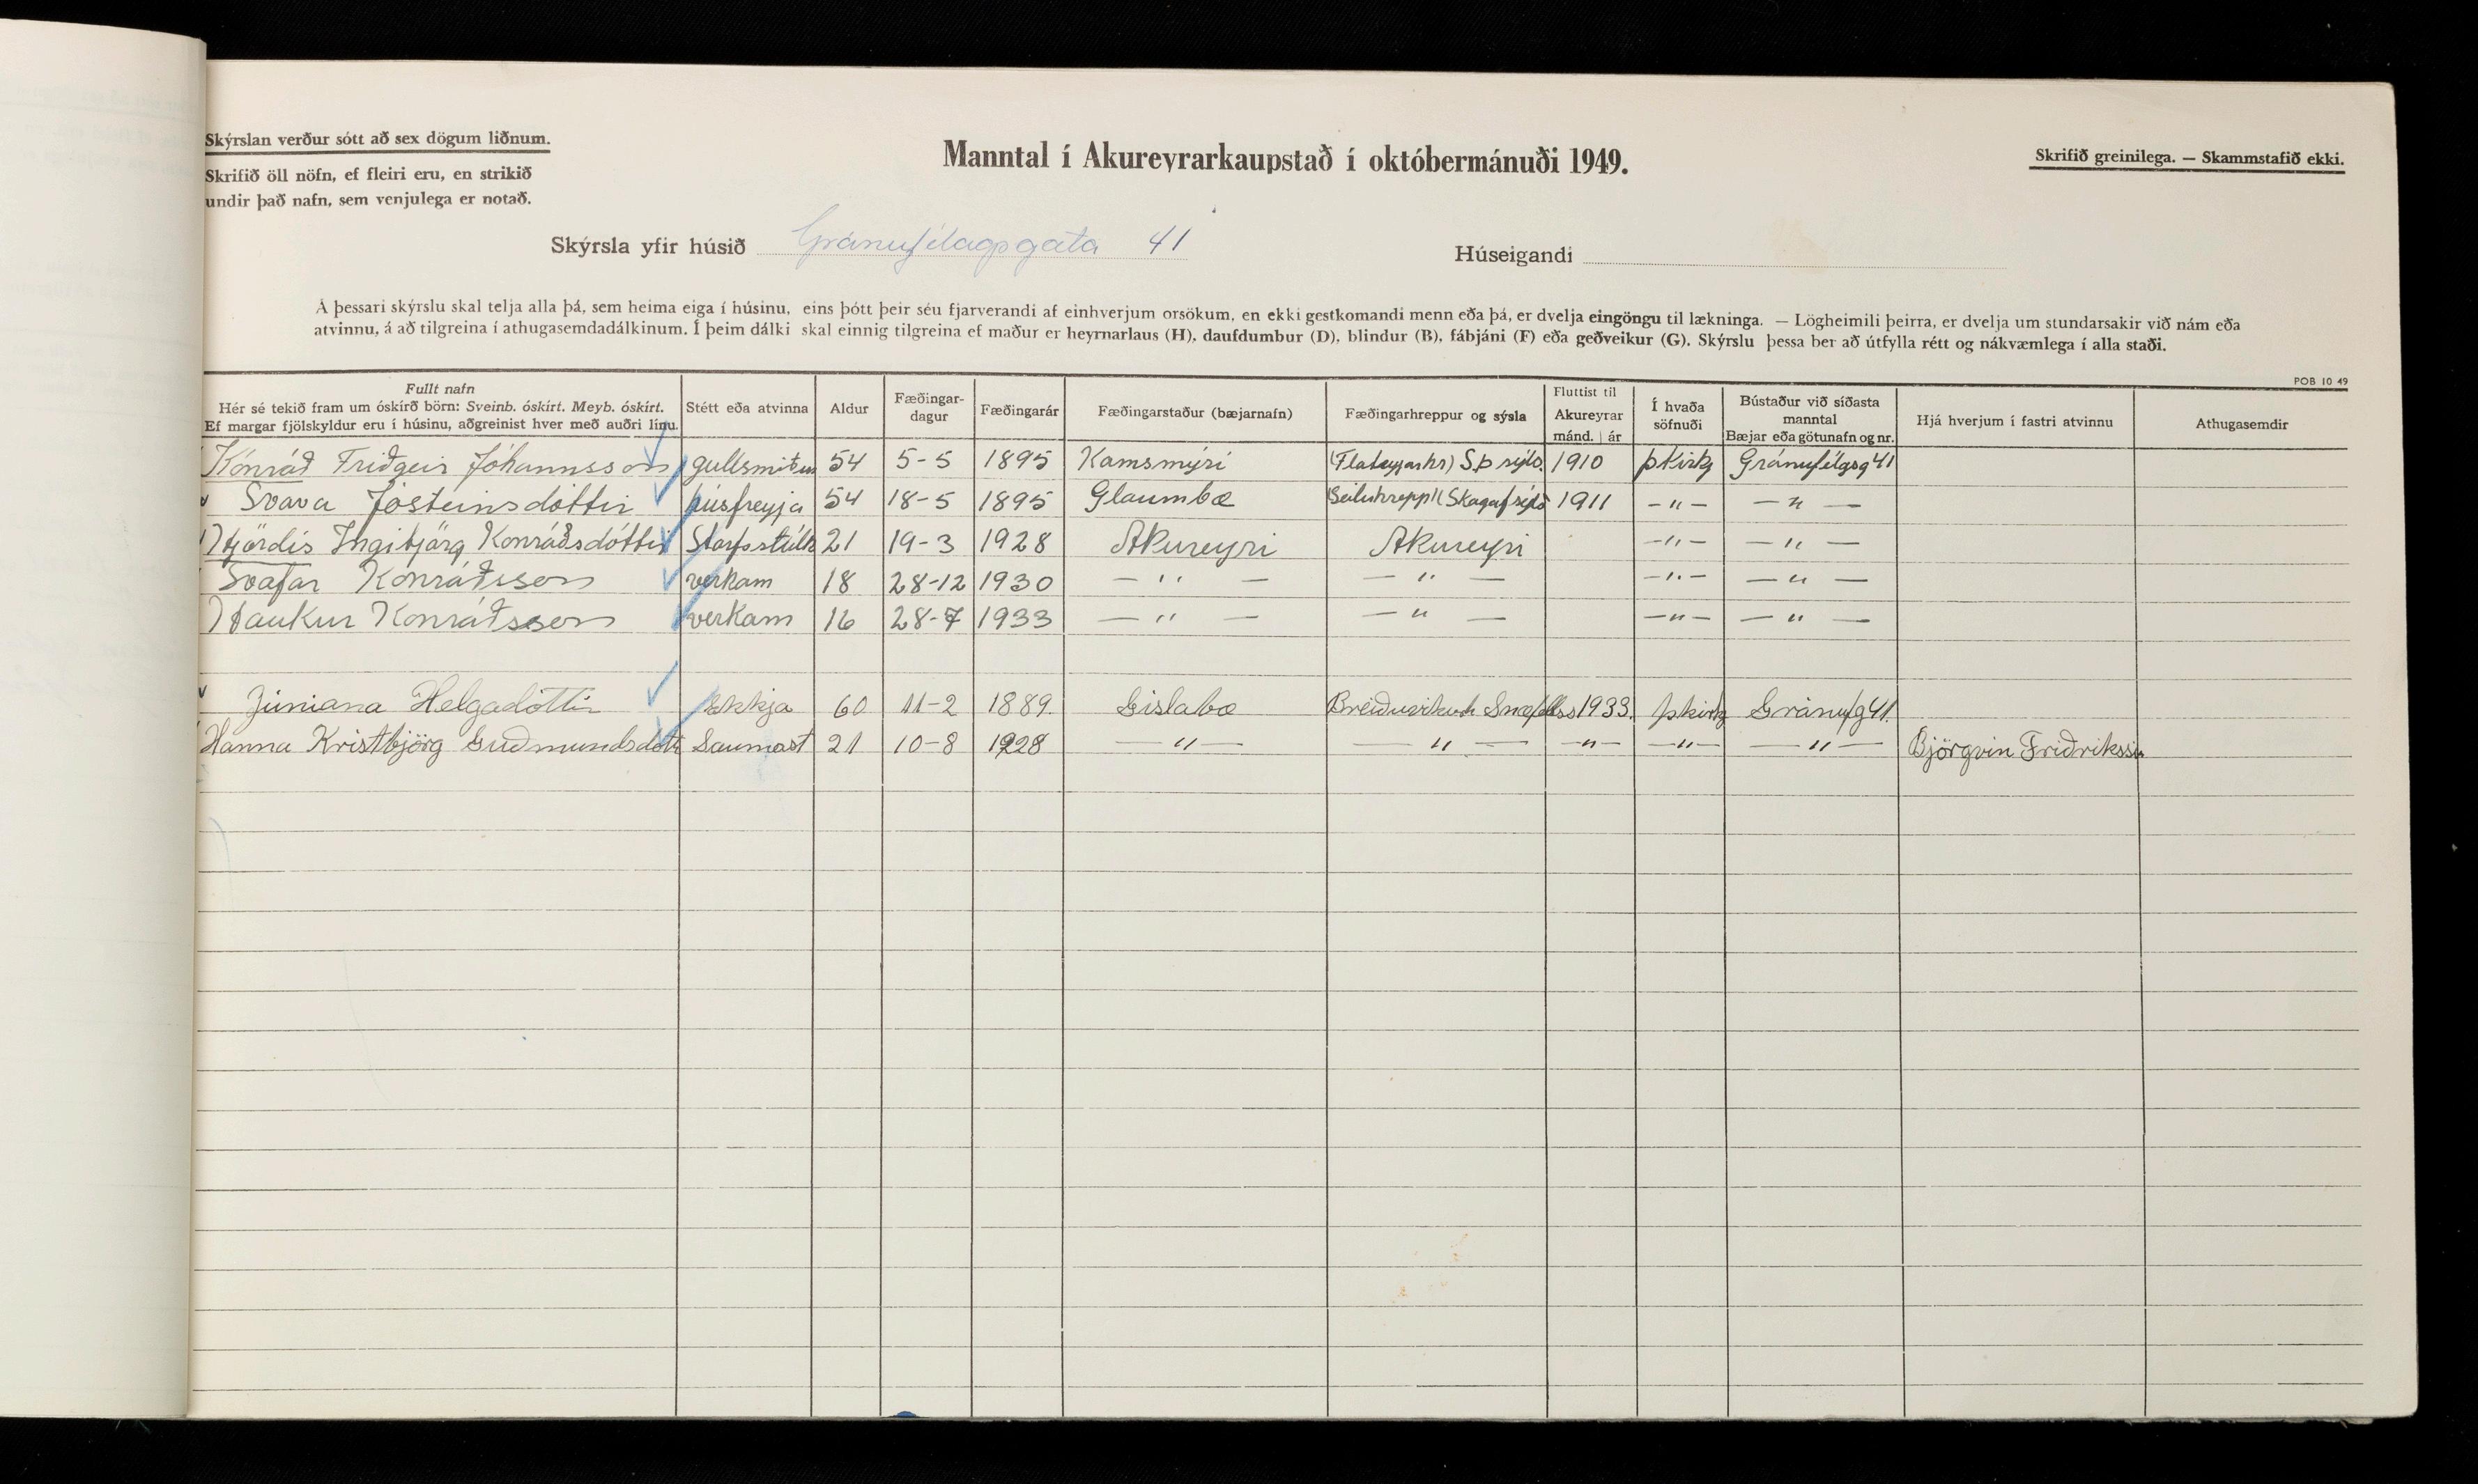 Skýrslan verður sótt að sex dögum liðnum.
Skrifið öll nöfn, ef fleiri eru, en strikið
undir það nafn, sem venjulega er notað.
Manntal í Akureyrarkaupstað í októbermánuði 1949.
Skrifið greinilega. — Skammstafið ekki.
Skýrsla yfir húsið Gránufélagsgata 41
Húseigandi
Á þessari skýrslu skal telja alla þá, sem heima eiga í húsinu, eins þótt þeir séu fjarverandi af einhverjum orsökum, en ekki gestkomandi menn eða þá, er dvelja eingöngu til lækninga. — Lögheimili þeirra, er dvelja um stundarsakir við nám eða
atvinnu, á að tilgreina í athugasemdadálkinum. Í þeim dálki skal einnig tilgreina ef maður er heyrnarlaus (H), daufdumbur (D), blindur (B), fábjáni (F) eða geðveikur (G). Skýrslu þessa ber að útfylla rétt og nákvæmlega í alla staði.
POB 10 49
Fullt nafn
Hér sé tekið fram um óskírð börn: Sveinb. óskírt. Meyb. óskírt.
Ef margar fjölskyldur eru í húsinu, aðgreinist hver með auðri línu.
Stétt eða atvinna
Aldur
Fæðingar-
dagur
Fæðingarár
Fæðingarstaður (bæjarnafn)
Fæðingarhreppur og sýsla
Fluttist til
Akureyrar
mánd. | ár
Í hvaða
söfnuði
Bústaður við síðasta
manntal
Bæjar eða götunafn og nr.
Hjá hverjum í fastri atvinnu
Athugasemdir
Konráð Friðgeir Jóhannsson gullsmiður 54 5-5 1895 Kamsmýri (Flateyjarhr) S.Þ sýslu 1910 þkirkj Gránufélgsg 41
Svava Jósteinsdóttir húsfreyja 54 18-5 1895 Glaumbæ 1911 -〃- -〃-
Hjördís Ingibjörg Konráðsdóttir Starfsstúlk 21 19-3 1928 Akureyri Akureyri -〃- -〃-
Svafar Konráðsson verkam 18 28-12 1930 -〃- -〃- -〃- -〃-
Haukur Konráðsson verkam 16 28-7 1933 -〃- -〃- -〃- -〃-
Júníana Helgadóttir Ekkja 60 11-2 1889. Gislabæ 1933. þkirkj Gránufg 41.
Hanna Kristbjörg Guðmundsdóttir Saumast 21 10-8 1928 -〃- -〃- -〃- -〃- -〃- Björgvin Friðriksson